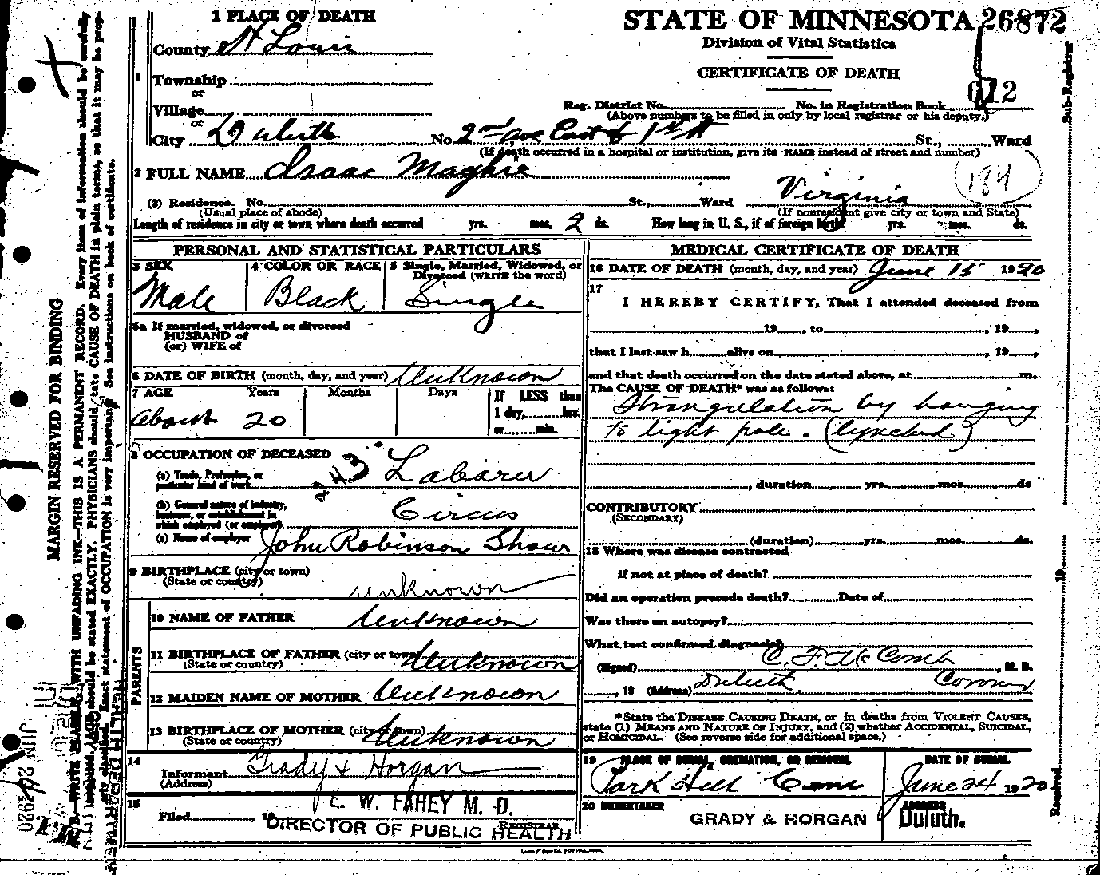 1 PLACE OF DEATH
STATE OF MINNESOTA 26872
Division of Vital Statistics
CERTIFICATE OF DEATH
County St Louis
Township
or
Village
or
City Duluth No. 2nd ave East & 1st St St., Ward
Reg. District No. No. in Registration Book 612
(Above numbers to be filled in only by local registrar or his deputy.)
(If death occurred in a hospital or institution, give its NAME instead of street and number)
2 FULL NAME Isaac Maghie
194
(3) Residence. No. St., Ward Virginia
(Usual place of abode) (If nonresident give city or town and State)
Length of residence in city or town where death occurred yrs. mos. 2 ds. How long in U. S., if of foreign birth? yrs. mos. ds.
PERSONAL AND STATISTICAL PARTICULARS
3 SEX
Male
4 COLOR OR RACE
Black
5 Single, Married, Widowed, or
Divorced (WRITE the word)
Single
5a If married, widowed, or divorced
HUSBAND of
(or) WIFE of
6 DATE OF BIRTH (month, day, and year) Unknown
7 AGE Years Months Days If LESS than
1 day, hrs.
or min.
About 20
8 OCCUPATION OF DECEASED
(a) Trade, Profession, or
particular kind of work Laborer
(b) General nature of industry,
business, or establishment in
which employed (or employer) Circus
(c) Name of employer John Robinson Show
9 BIRTHPLACE (city or town)
(State or country) unknown
PARENTS
10 NAME OF FATHER Unknown
11 BIRTHPLACE OF FATHER (city or town) Unknown
(State or country)
12 MAIDEN NAME OF MOTHER Unknown
13 BIRTHPLACE OF MOTHER (city or town) Unknown
(State or country)
14
Informant Grady & Horgan
(Address)
15
Filed 19 E. W. FAHEY M. D.
REGISTRAR
DIRECTOR OF PUBLIC HEALTH
MEDICAL CERTIFICATE OF DEATH
16 DATE OF DEATH (month, day, and year) June 15 1920
17
I HEREBY CERTIFY, That I attended deceased from
19 , to , 19 ,
that I last saw h alive on , 19 ,
and that death occurred on the date stated above, at m.
The CAUSE OF DEATH* was as follows:
Strangulation by hanging
to light pole. (lynched)
, duration yrs. mos. ds
CONTRIBUTORY
(SECONDARY)
(duration) yrs. mos. ds.
18 Where was disease contracted
if not at place of death?
Did an operation precede death? Date of
Was there an autopsy?
What test confirmed diagnosis?
(Signed) C. F. McComb , M. D.
, 19 (Address) Duluth Coroner
*State the DISEASE CAUSING DEATH, or in deaths from VIOLENT CAUSES,
state (1) MEANS AND NATURE OF INJURY, and (2) whether ACCIDENTAL, SUICIDAL,
or HOMICIDAL. (See reverse side for additional space.)
19 PLACE OF BURIAL, CREMATION, OR REMOVAL
Park Hill Cem
DATE OF BURIAL
June 24 1920
20 UNDERTAKER
GRADY & HORGAN
ADDRESS
Duluth.
MARGIN RESERVED FOR BINDING
Sub-Registrar
Received 19